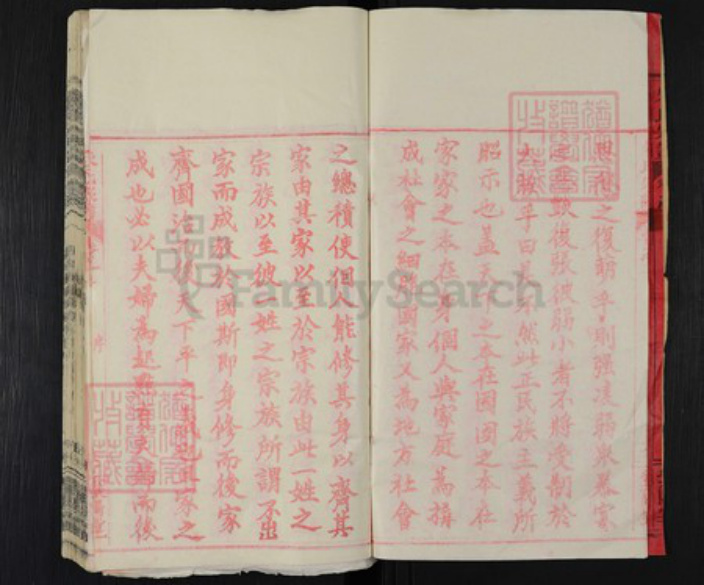 之復萌乎剛强凌弱衆暴寡
後張彼弱小者不將受制於
乎曰 然此正民族主義所
昭示也蓋天下之本在國國之本在
家家之本在身個人與家庭為搆
成社會之細 國家又為地方社會
之總積使個人能修其身以齊其
家由其家以至於宗族由此一姓之
宗族以至彼一姓之宗族所謂不出
家而成教於國斯即身修而後家
齊國治 天下平 家之
成也必以夫婦為起 有夫婦而後
FamilySearch